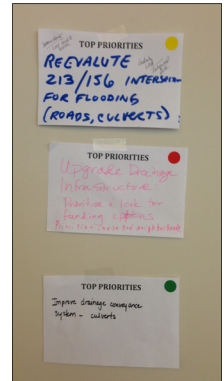 TOP PRIORITIES
REEVALUTE
213/156 INTERSE
FOR FLOODING
(ROADS, CULVERTS)
TOP PRIORITIES
Upgrade Drainage
Infrastructure.
look for
funding options
TOP PRIORITIES
Improve drainage conveyance
system - culverts